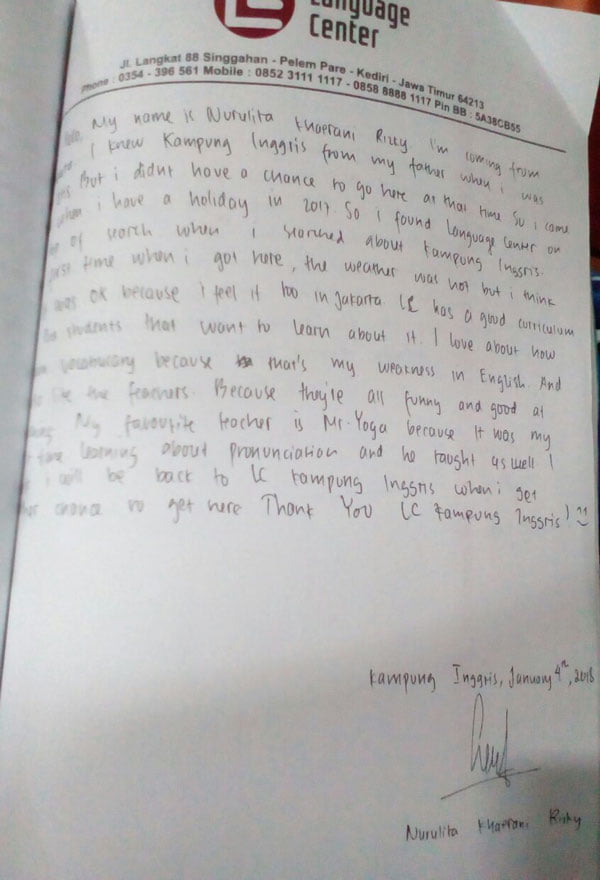 Language
Center
Jl. Langkat 88 Singgahan - Pelem Pare - Kediri - Jawa Timur 64213
Phone : 0354 - 396 561 Mobile : 0852 3111 1117 - 0858 8888 1117 Pin BB : 5A38CB55
My name is Nurulita Khaerani Rizky I'm coming from
I knew Kampung Inggris from my father when i was
But i didnt have a chance to go here at that time So i came
when i have a holiday in 2017. So i found Language Center on
of search when I searched about Kampung Inggris.
time when i got here, the weather was hot but i think
was ok because i feel it too in Jakarta LC has a good curriculum
students that want to learn about it. I love about how
vocabulary because that's my weakness in English. And
like the teachers. Because they're all funny and good at
My favourite teacher is Mr. Yoga because it was my
time learning about pronunciation and he taught us well I
i will be back to LC Kampung Inggris when i get
chance to get here Thank You LC Kampung Inggris!
Kampung Inggris, January 4th, 2018
Nurulita Khaerani Rizky